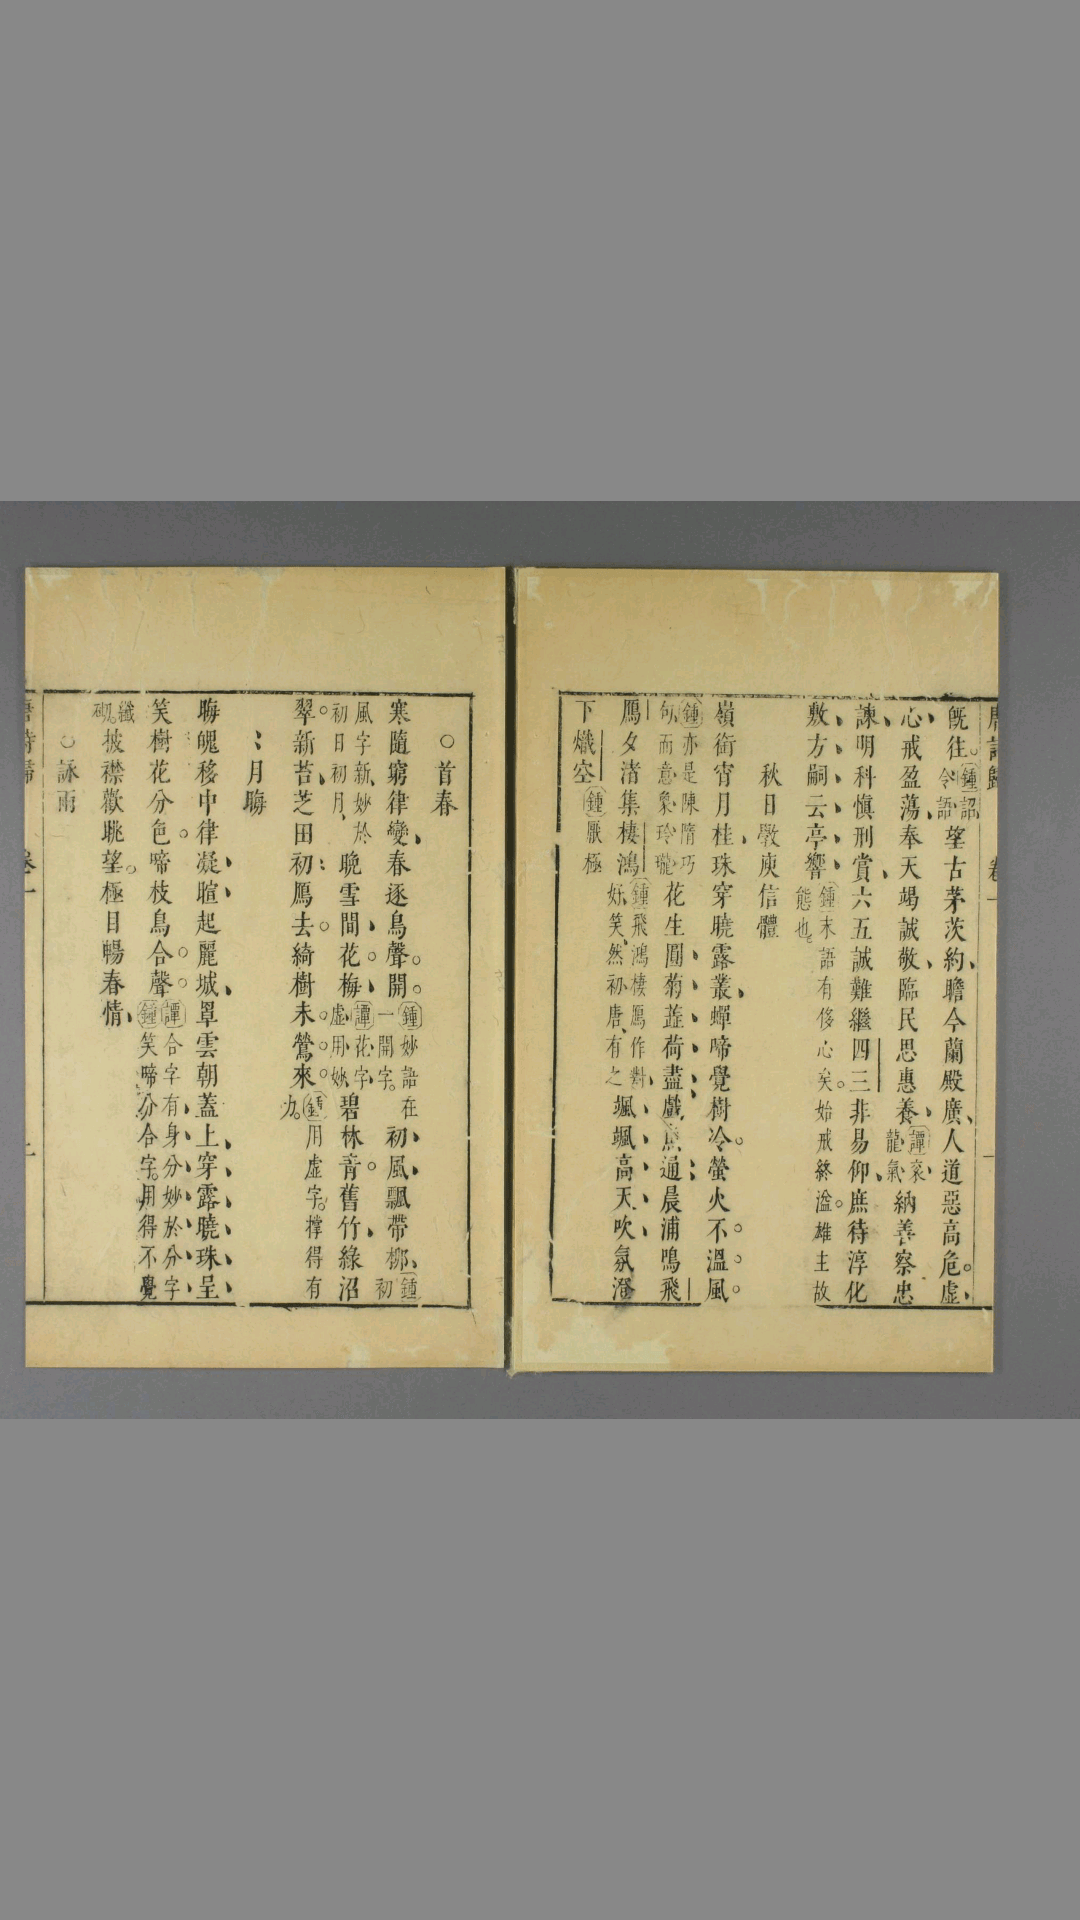 既往鍾詔令語望古茅茨約瞻今蘭殿廣人道惡高危虛
心戒盈蕩奉天竭誠敬臨民思惠養譚袞龍氣納善察忠
諫明科慎刑賞六五誠難繼四三非易仰庶待淳化
敷方嗣云亭響鍾末語有侈心矣始戒終溢雄主故態也
秋日斆庾信體
嶺銜宵月桂珠穿曉露叢蟬啼覺樹冷螢火不溫風
鍾亦是陳隋巧句而意象玲瓏花生圓菊蕋荷盡戲魚通晨浦鳴飛
鴈夕渚集棲鴻鍾飛鴻棲鴈作對妖笑然初唐有之颯颯高天吹氛澄
下熾空鍾厭極
首春
寒隨窮律變春逐鳥聲開鍾妙語在一開字初風飄帶栁鍾初
風字新妙於初日初月晚雪間花梅譚花字虛用妙碧林青舊竹綠沼
翠新苔芝田初鴈去綺樹未鶯來鍾用虛字撑得有力
月晦
晦魄移中律凝暄起麗城罩雲朝蓋上穿露曉珠呈
笑樹花分色啼枝鳥合聲譚合字有身分妙於分字鍾笑啼分合字用得不覺
纖砌披襟歡眺望極目暢春情
詠雨
唐詩歸
卷一